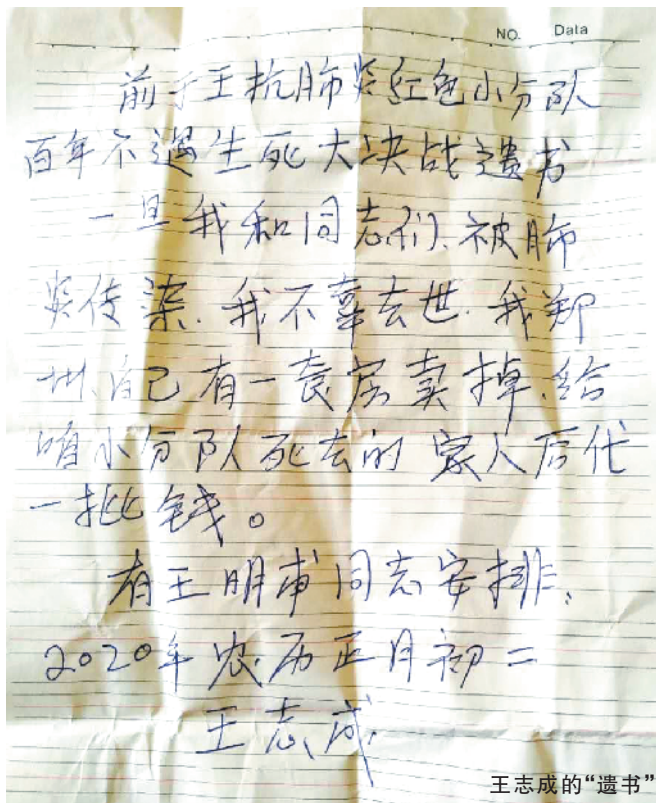 NO. Data
前于王抗肺炎红色小分队
百年不遇生死大决战遗书
一旦我和同志们、被肺
炎传染.我不幸去世.我郑
州、自己有一套房卖掉、给
咱小分队死去的家人后代
一批钱。
有王明甫同志安排、
2020年农历正月初二
王志成
王志成的“遗书”